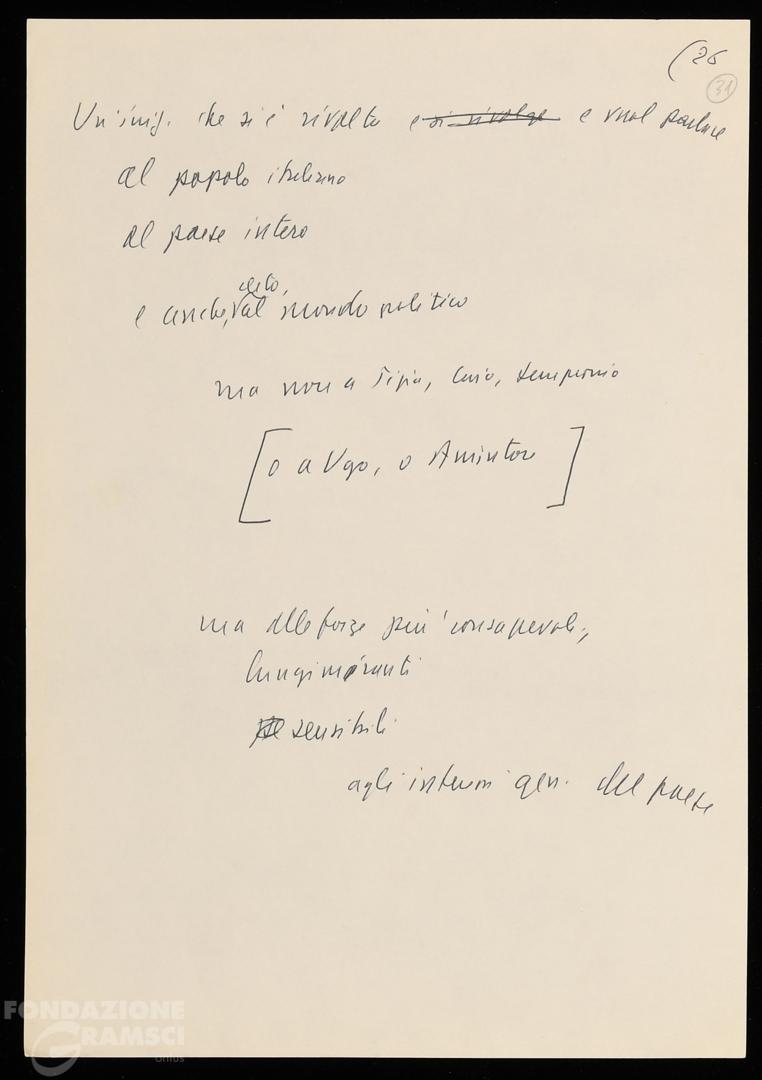 (26
31
Un'iniz. che si è rivolta e si rivolge e vuol parlare
al popolo italiano
al paese intero
e anche, certo, al mondo politico
ma non a Tizio, Caio, Sempronio
[o a Ugo, o Amintore]
ma alle forze più consapevoli,
lungimiranti
sensibili
agli interessi gen. del paese
FONDAZIONE
GRAMSCI
onlus